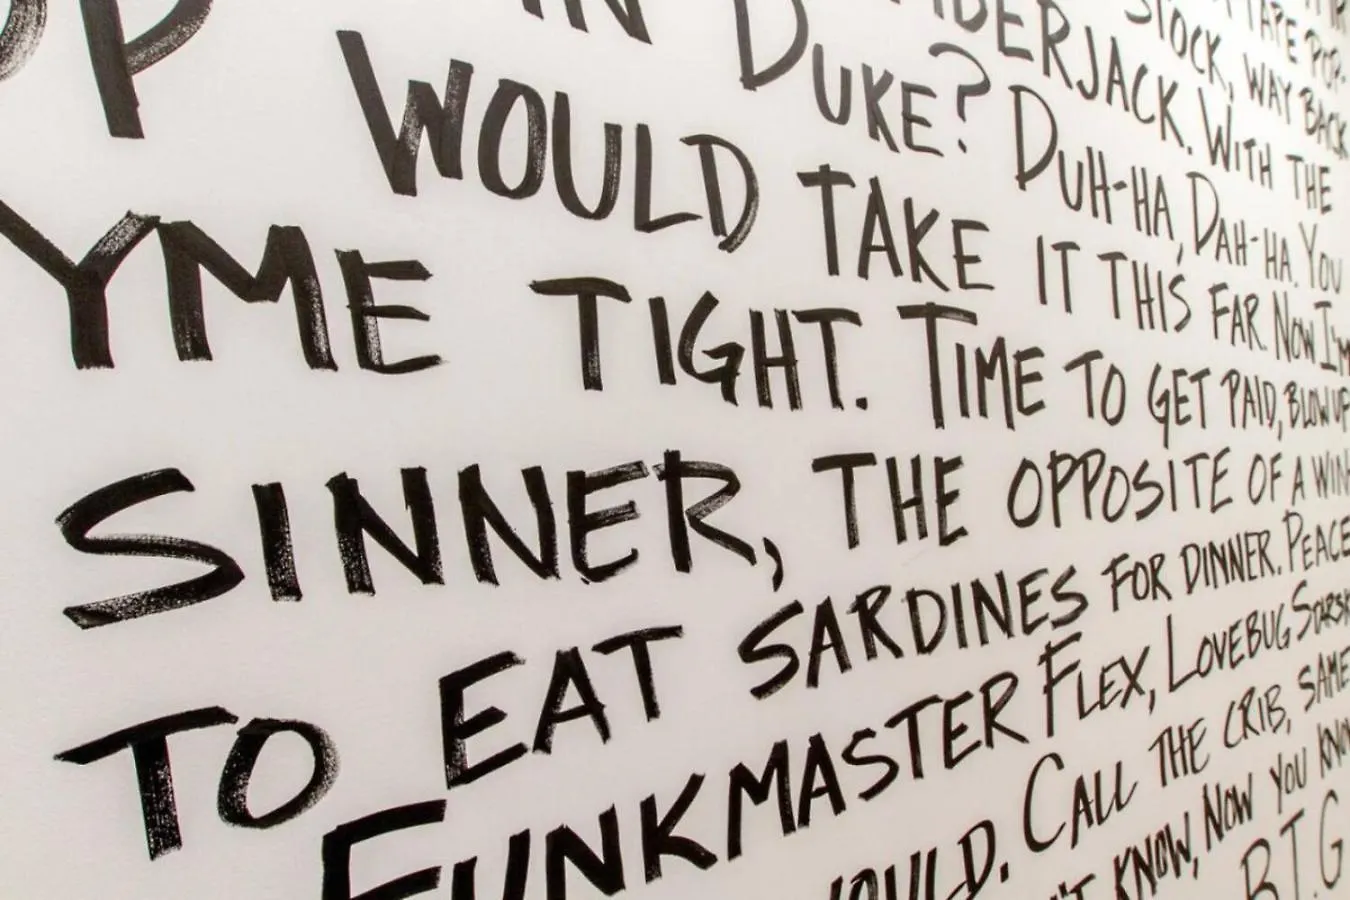 TAPE POP-
STOCK, WAY BACK
BERJACK. WITH THE
IN DUKE? DUH-HA, DAH-HA. YOU
P WOULD TAKE IT THIS FAR. NOW I'M
YME TIGHT. TIME TO GET PAID, BLOW UP
SINNER, THE OPPOSITE OF A WIN-
TO EAT SARDINES FOR DINNER. PEACE
FUNKMASTER FLEX, LOVEBUG STARSK
OULD. CALL THE CRIB, SAME
'T KNOW, NOW YOU KNOW
B.I.G